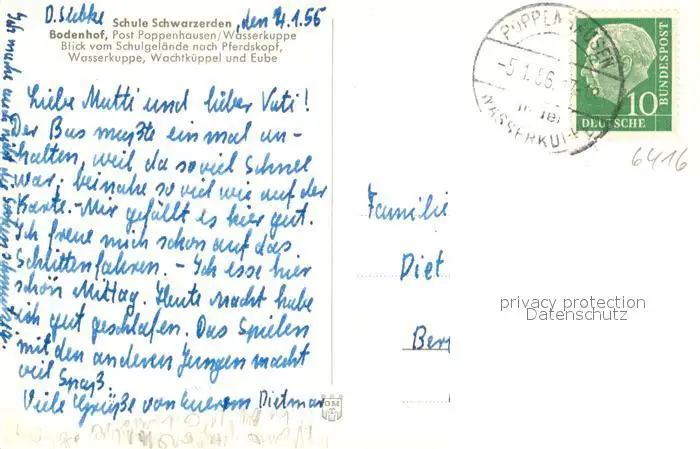 Schule Schwarzerden
Bodenhof, Post Poppenhausen/Wasserkuppe
Blick vom Schulgelände nach Pferdskopf,
Wasserkuppe, Wachtküppel und Eube
, den 4.1.56
Liebe Mutti und lieber Vati!
Der Bus mußte einmal an-
halten, weil da so viel Schnee
war; beinahe so viel wie auf der
Karte. - Mir gefällt es hier gut.
Ich freue mich schon auf das
Schlittenfahren. - Ich esse hier
schön Mittag. Heute Nacht habe
ich gut geschlafen. Das Spielen
mit den anderen Jungen macht
viel Spaß.
Viele Grüße von Eurem Dietmar
POPPENHAUSEN
-5.1.56
WASSERKU
10
DEUTSCHE
BUNDESPOST
6416
Familie
Diet
Ber
privacy protection
Datenschutz